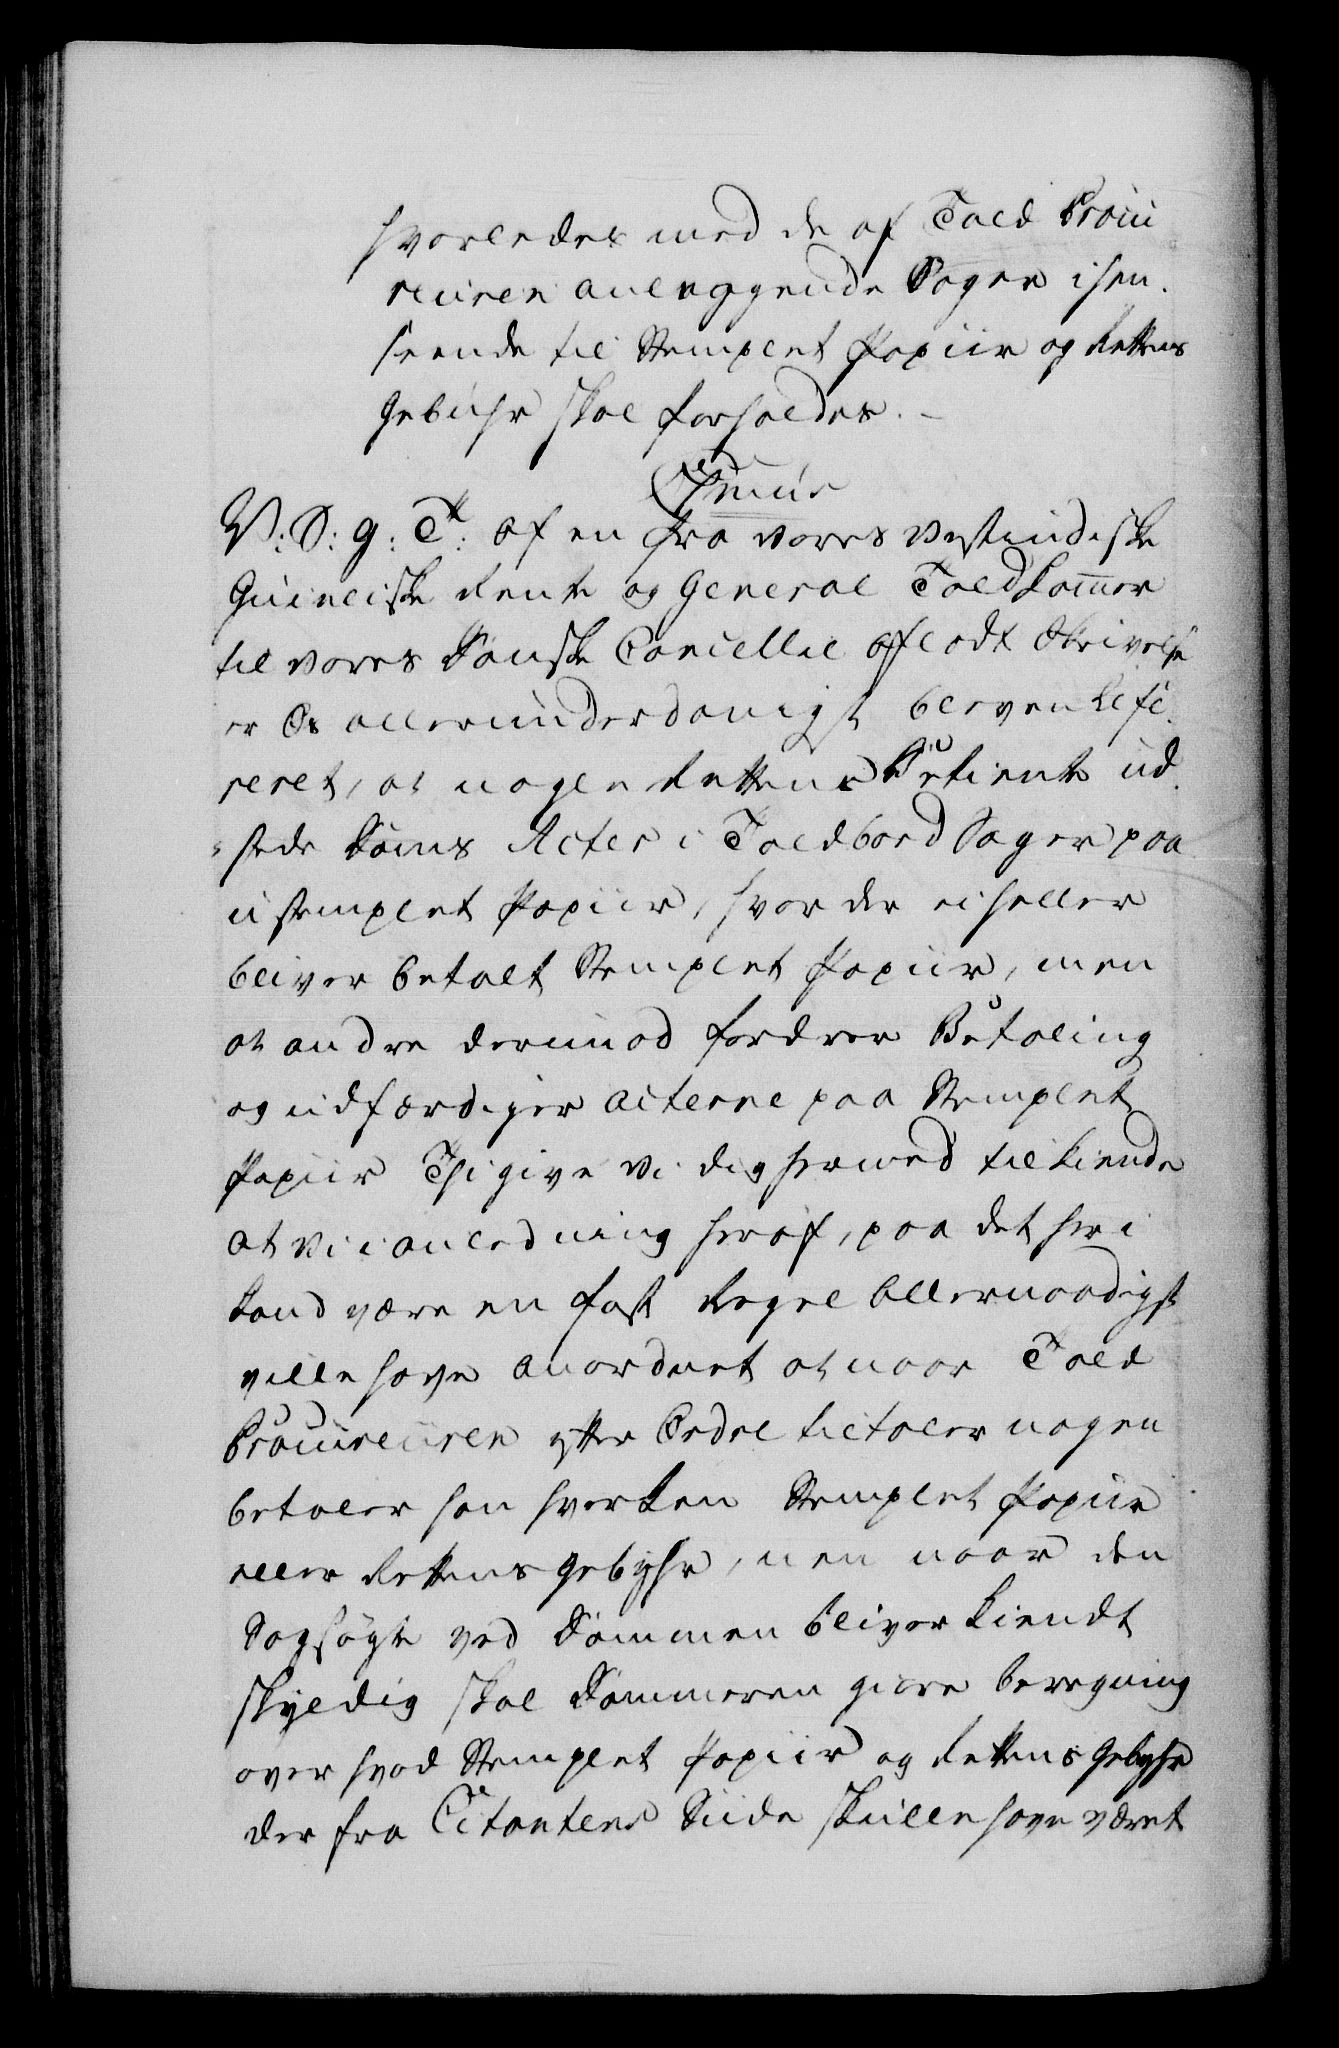 hvorledes med de af Told Procu
reuren anlæggende Sager i hen¬
seende til Stemplet Papiir og Rettens
Gebühr skal forholdes. –
V: S: G: T: af en fra vores Vestindiske
Guineiske Rente og General Told Kammer
til vores Danske Cancellie afladt Skrivelse
er Os allerunderdanigst bleven Refe¬
reret, at nogle Rettens Betiente ud¬
stede Doms Acter i Toldbord Sager paa
ustemplet Papiir, hvor der ei heller
bliver betalt Stemplet Papiir, men
at andre derimod fordrer Betaling
og udfærdiger Acterne paa Stemplet
Papiir Thi give Vi dig hermed tilkiende
at Vi i anledning heraf, paa det heri
kand være en fast Regel Allernaadigst
ville have anordnet at naar Told
Procureuren efter Ordre tiltaler nogen
betaler han hverken Stemplet Papiir
eller Rettens Gebyhr, men naar den
Sagsøgte ved Dommen bliver kiendt
skyldig skal Dommeren giøre beregning
over hvad Stemplet Papiir og Rettens Gebyhr
der fra Citantens Siide skulle have været